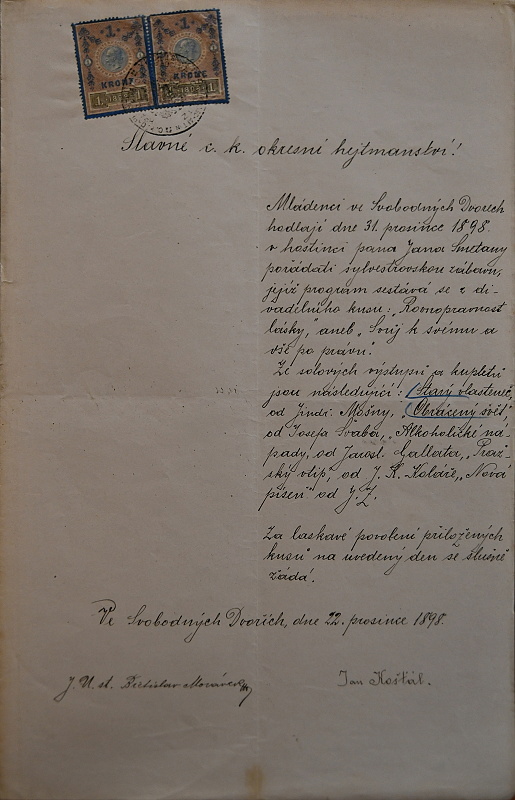 1 1
KRONE KRONE
1 1898 1 1 1898 1
Slavné c. k. okresní hejtmanství!
Mládenci ve Svobodných Dvorech
hodlají dne 31. prosince 1898.
v hostinci pana Jana Smetany
pořádati sylvestrovskou zábavu,
jejíž program sestává se z di-
vadelního kusu: „Rovnoprávnost
lásky," aneb „Svůj k svému a
vše po právu".
Ze solových výstupů a kupletů
jsou následující: „Starý vlastenec,"
od Jindř. Mošny, „Obrácený svět,"
od Josefa Švába, „Alkoholické ná-
pady, od Jarosl. Gallata, „Praž-
ský vtip," od J. K. Koláře, „Nová
píseň" od J. Z.
Za laskavé povolení přiložených
kusů na uvedený den se slušně
žádá.
Ve Svobodných Dvořích, dne 22. prosince 1898.
J. U. st. Břetislav
Jan Košťál.